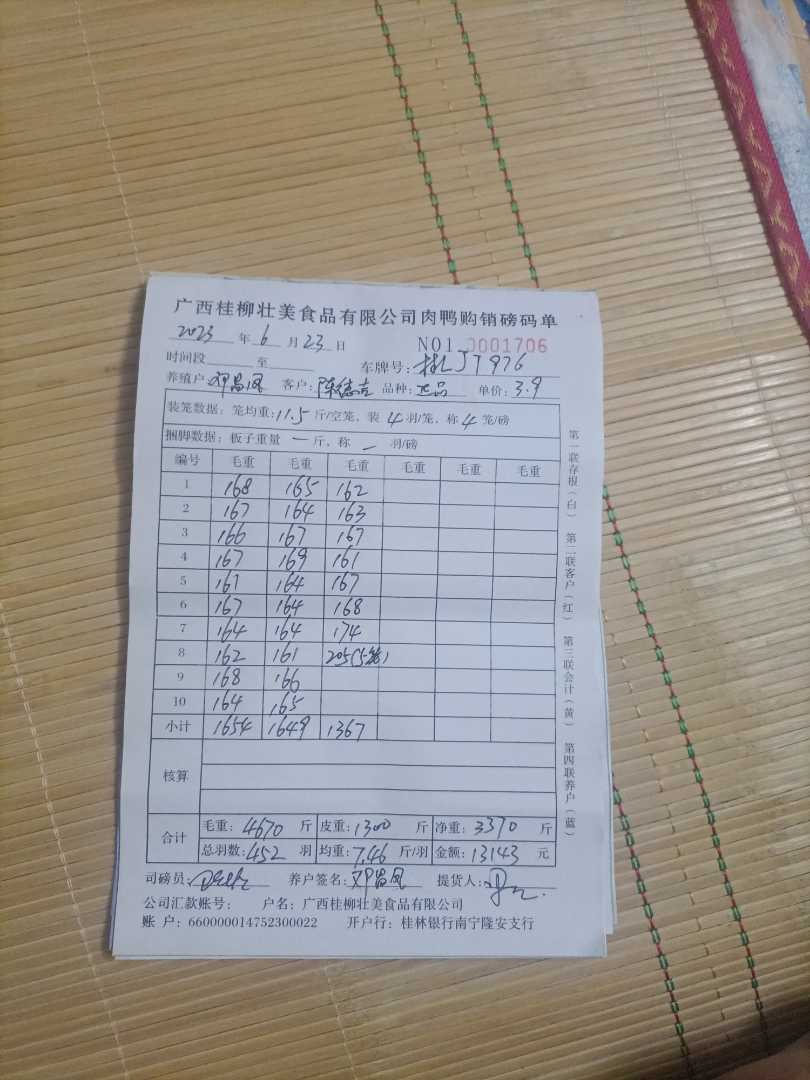 广西桂柳壮美食品有限公司肉鸭购销磅码单
2023 年 6 月 23 日 NO1 0001706
时间段 至 车牌号: 桂JT976
养殖户 邓昌凤 客户: 陈德吉 品种: 正品 单价: 3.9
装笼数据: 笼均重: 11.5 斤/空笼、装 4 羽/笼、称 4 笼/磅
捆脚数据: 板子重量 一 斤, 称 一 羽/磅
编号 毛重 毛重 毛重 毛重 毛重 毛重
1 168 165 162
2 167 164 163
3 166 167 167
4 167 169 161
5 161 164 167
6 167 164 168
7 164 164 174
8 162 161 205(5笼)
9 168 166
10 164 165
小计 1654 1649 1367
核算
合计
毛重: 4670 斤 皮重: 1300 斤 净重: 3370 斤
总羽数: 452 羽 均重: 7.46 斤/羽 金额: 13143 元
司磅员: 养户签名: 邓昌凤 提货人:
公司汇款账号: 户名: 广西桂柳壮美食品有限公司
账 户: 660000014752300022 开户行: 桂林银行南宁隆安支行
第一联存根(白) 第二联客户(红) 第三联会计(黄) 第四联养户(蓝)